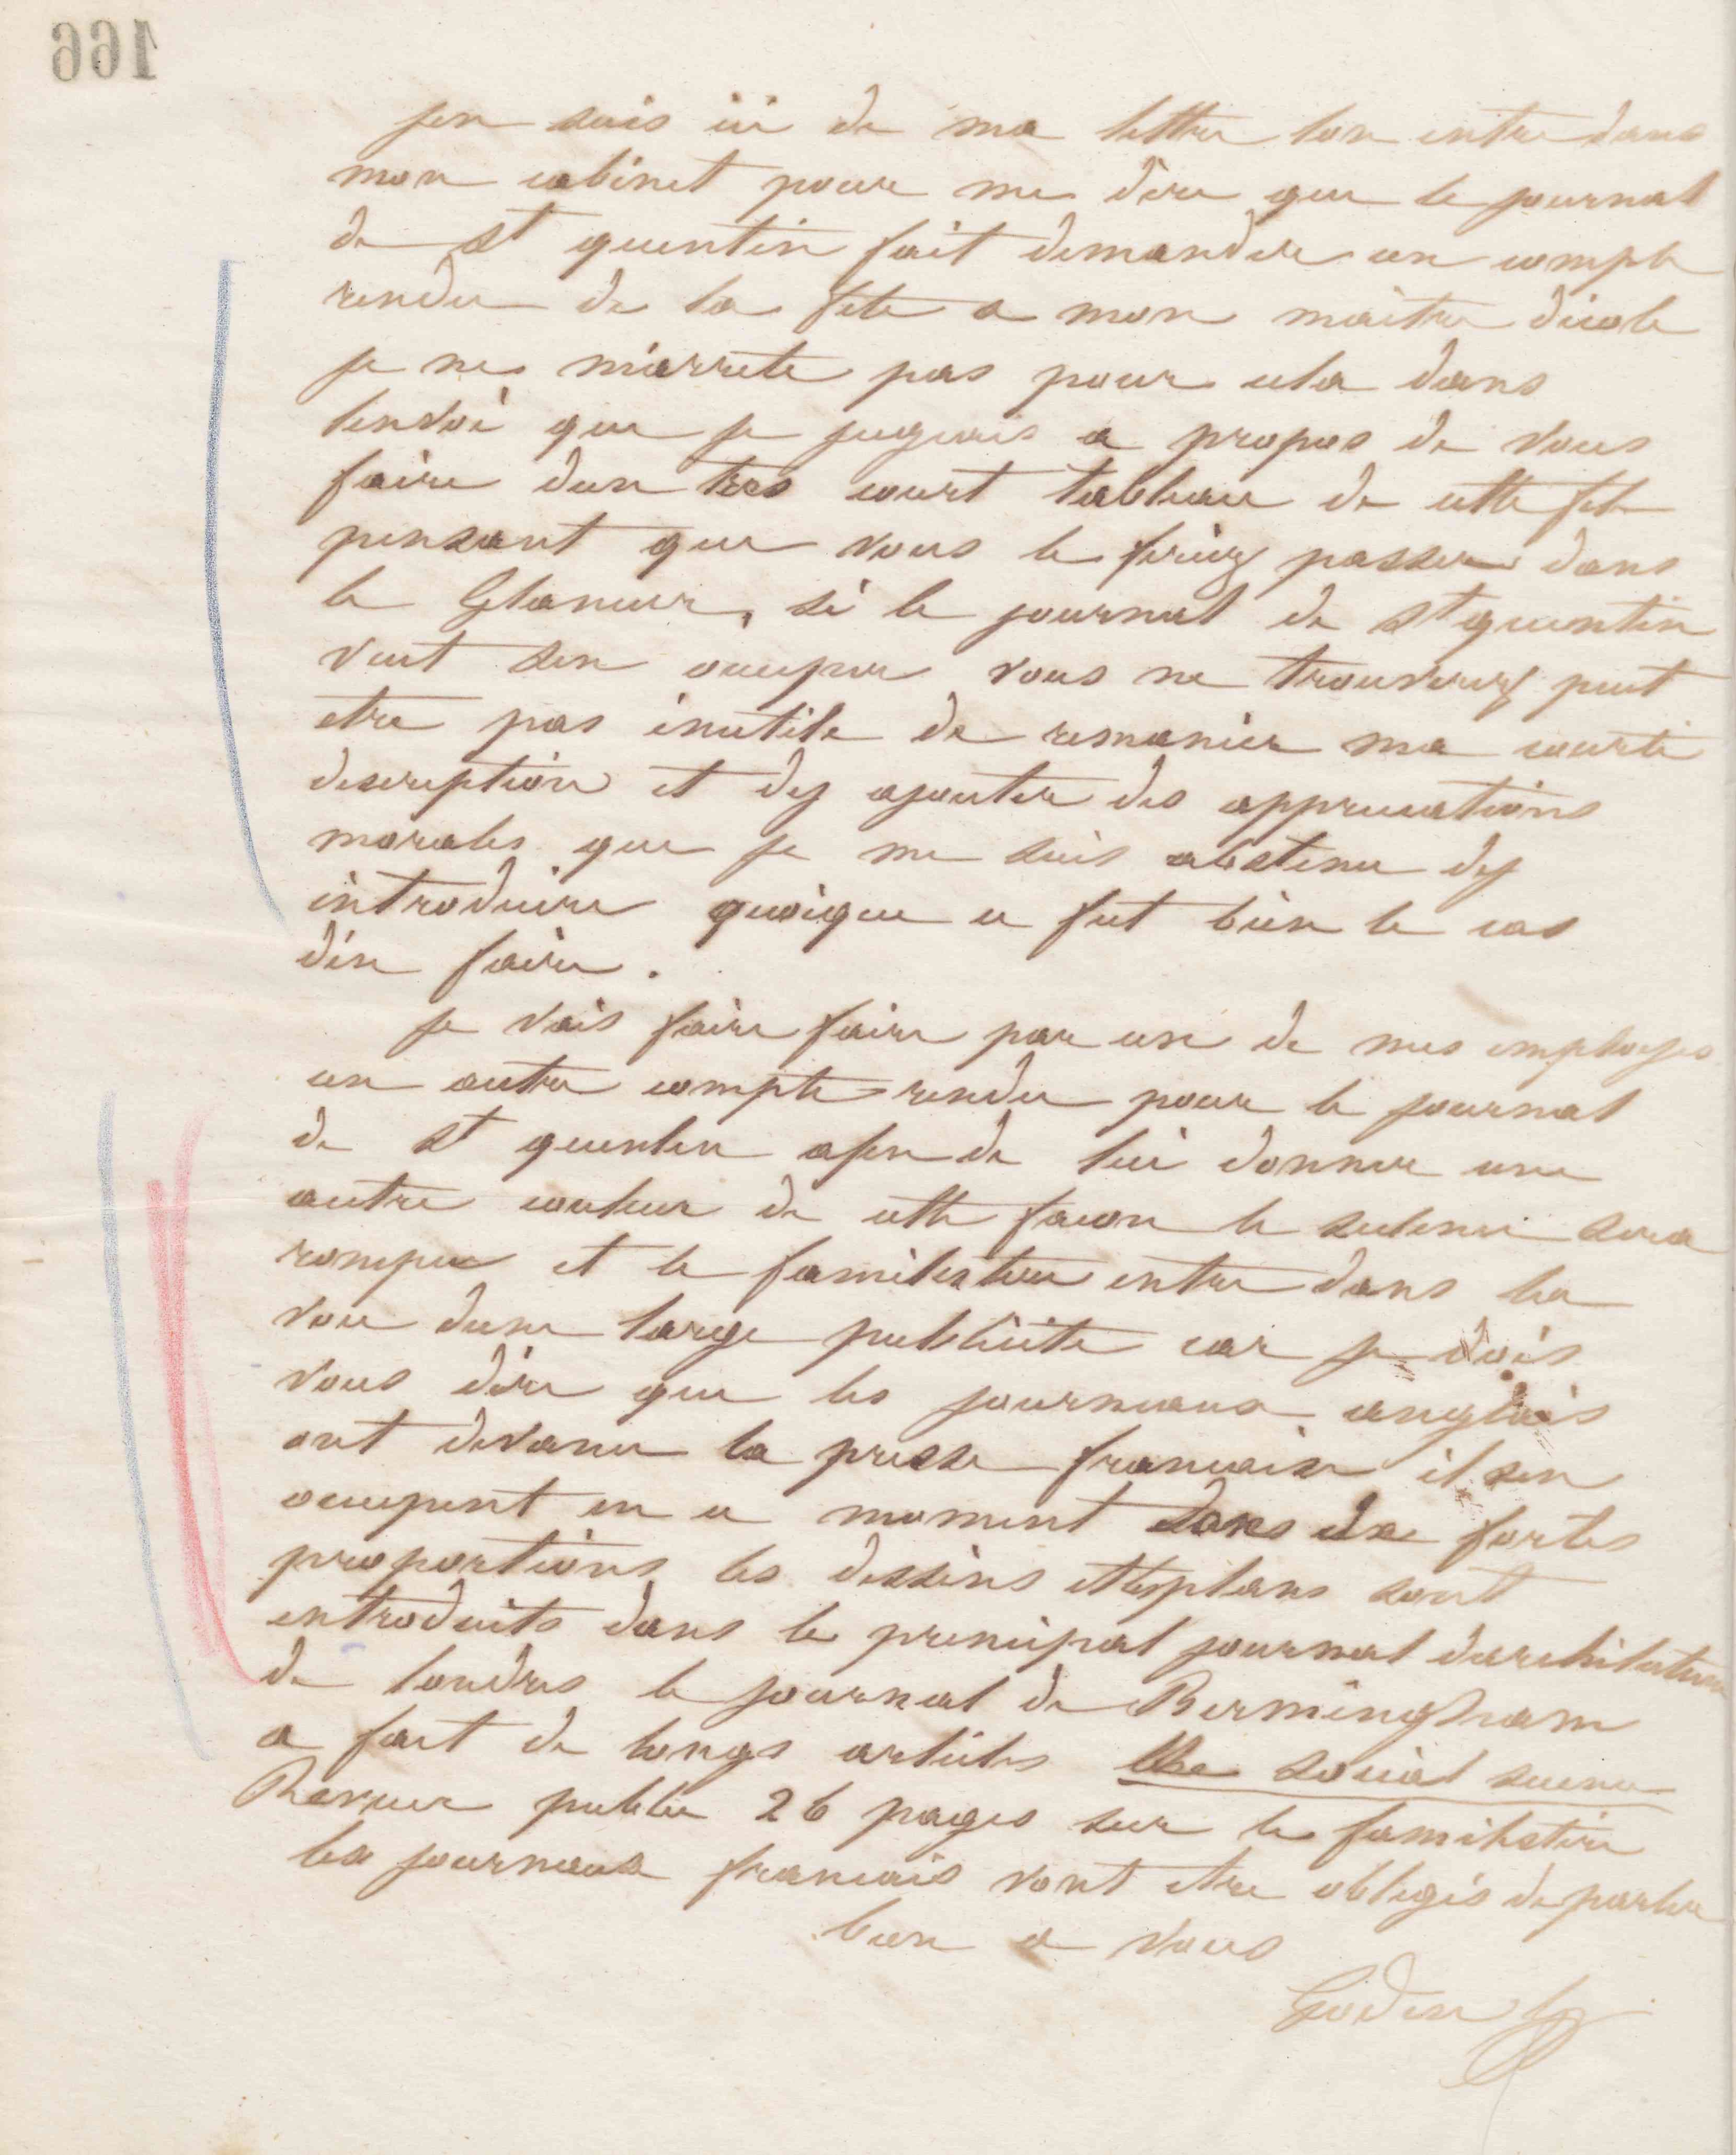 166
jen suis ici de ma lettre lon entre dans
mon cabinet pour me dire que le journal
de St quentin fait demander un compte
rendu de la fete a mon maitre décole
je ne m'arrete pas pour cela dans
lenvoi que je jugeais a propos de vous
faire dun tres court tableau de cette fete
pensant que vous le feriez passer dans
le Glaneur, si le journal de St quentin
veut sen occuper vous ne trouverez peut
etre pas inutile de remanier ma courte
description et dy ajouter des appreciations
morales que je me suis abstenu dy
introduire quoique ce fut bien le cas
d'en faire.
je vais faire faire par un de mes employes
un autre compte rendu pour le journal
de St quentin afin de lui donner une
autre couleur de cette facon le silence sera
rompu et le familistere entre dans la
voie dune large publicite car je dois
vous dire que les journaux anglais
ont devancé la presse francaise il sen
occupent en ce moment dans de fortes
proportions les dessins et les plans sont
introduits dans le principal journal darchitecture
de londres le journal de Birmingham
a fait de longs articles the social science
Revue publie 26 pages sur le familistère
les journaux francais vont etre obligés de parler
bien a vous
Godin